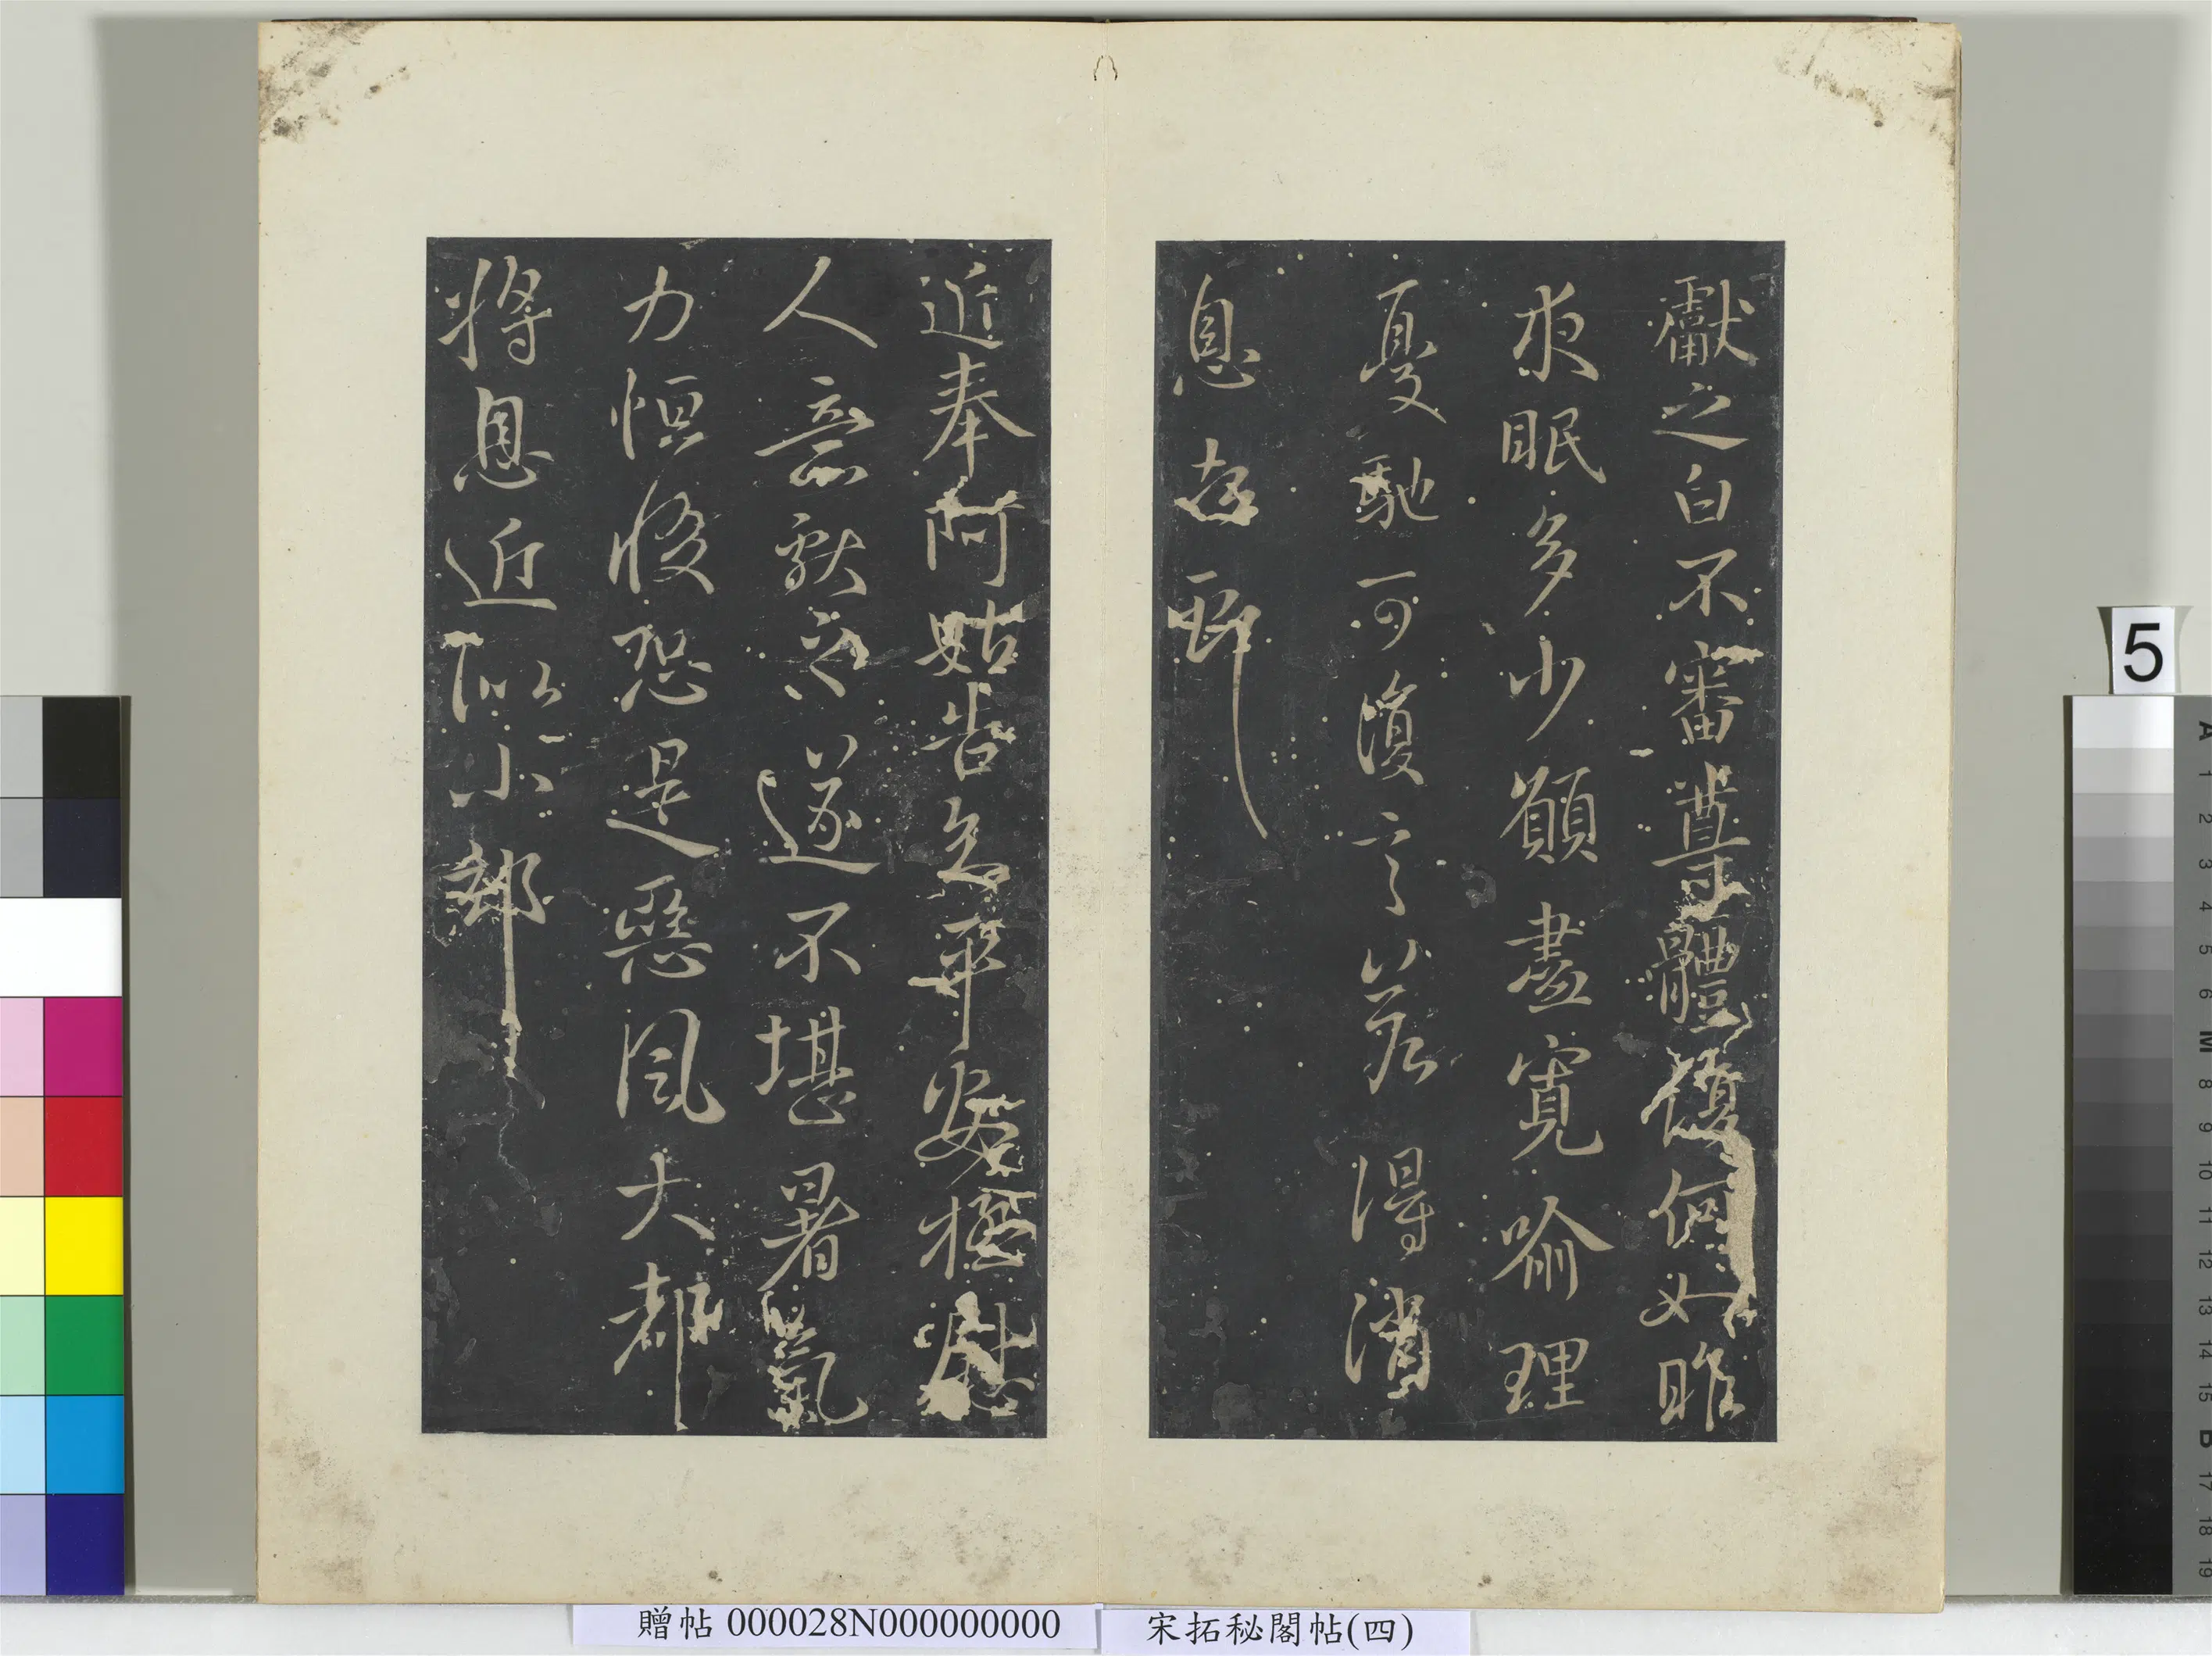 獻之白不審尊體復何如昨
夜眠多少願盡寬喻理
憂馳可復言以若得消
息
近奉阿姑告知平安極慰
人意獻之遂不堪暑氣
力恒惙恐是惡風大都
將息近似小卻
5
贈帖 000028N000000000
宋拓秘閣帖(四)
A 1 2 3 4 5 6 M 8 9 10 11 12 13 14 15 B 17 18 19